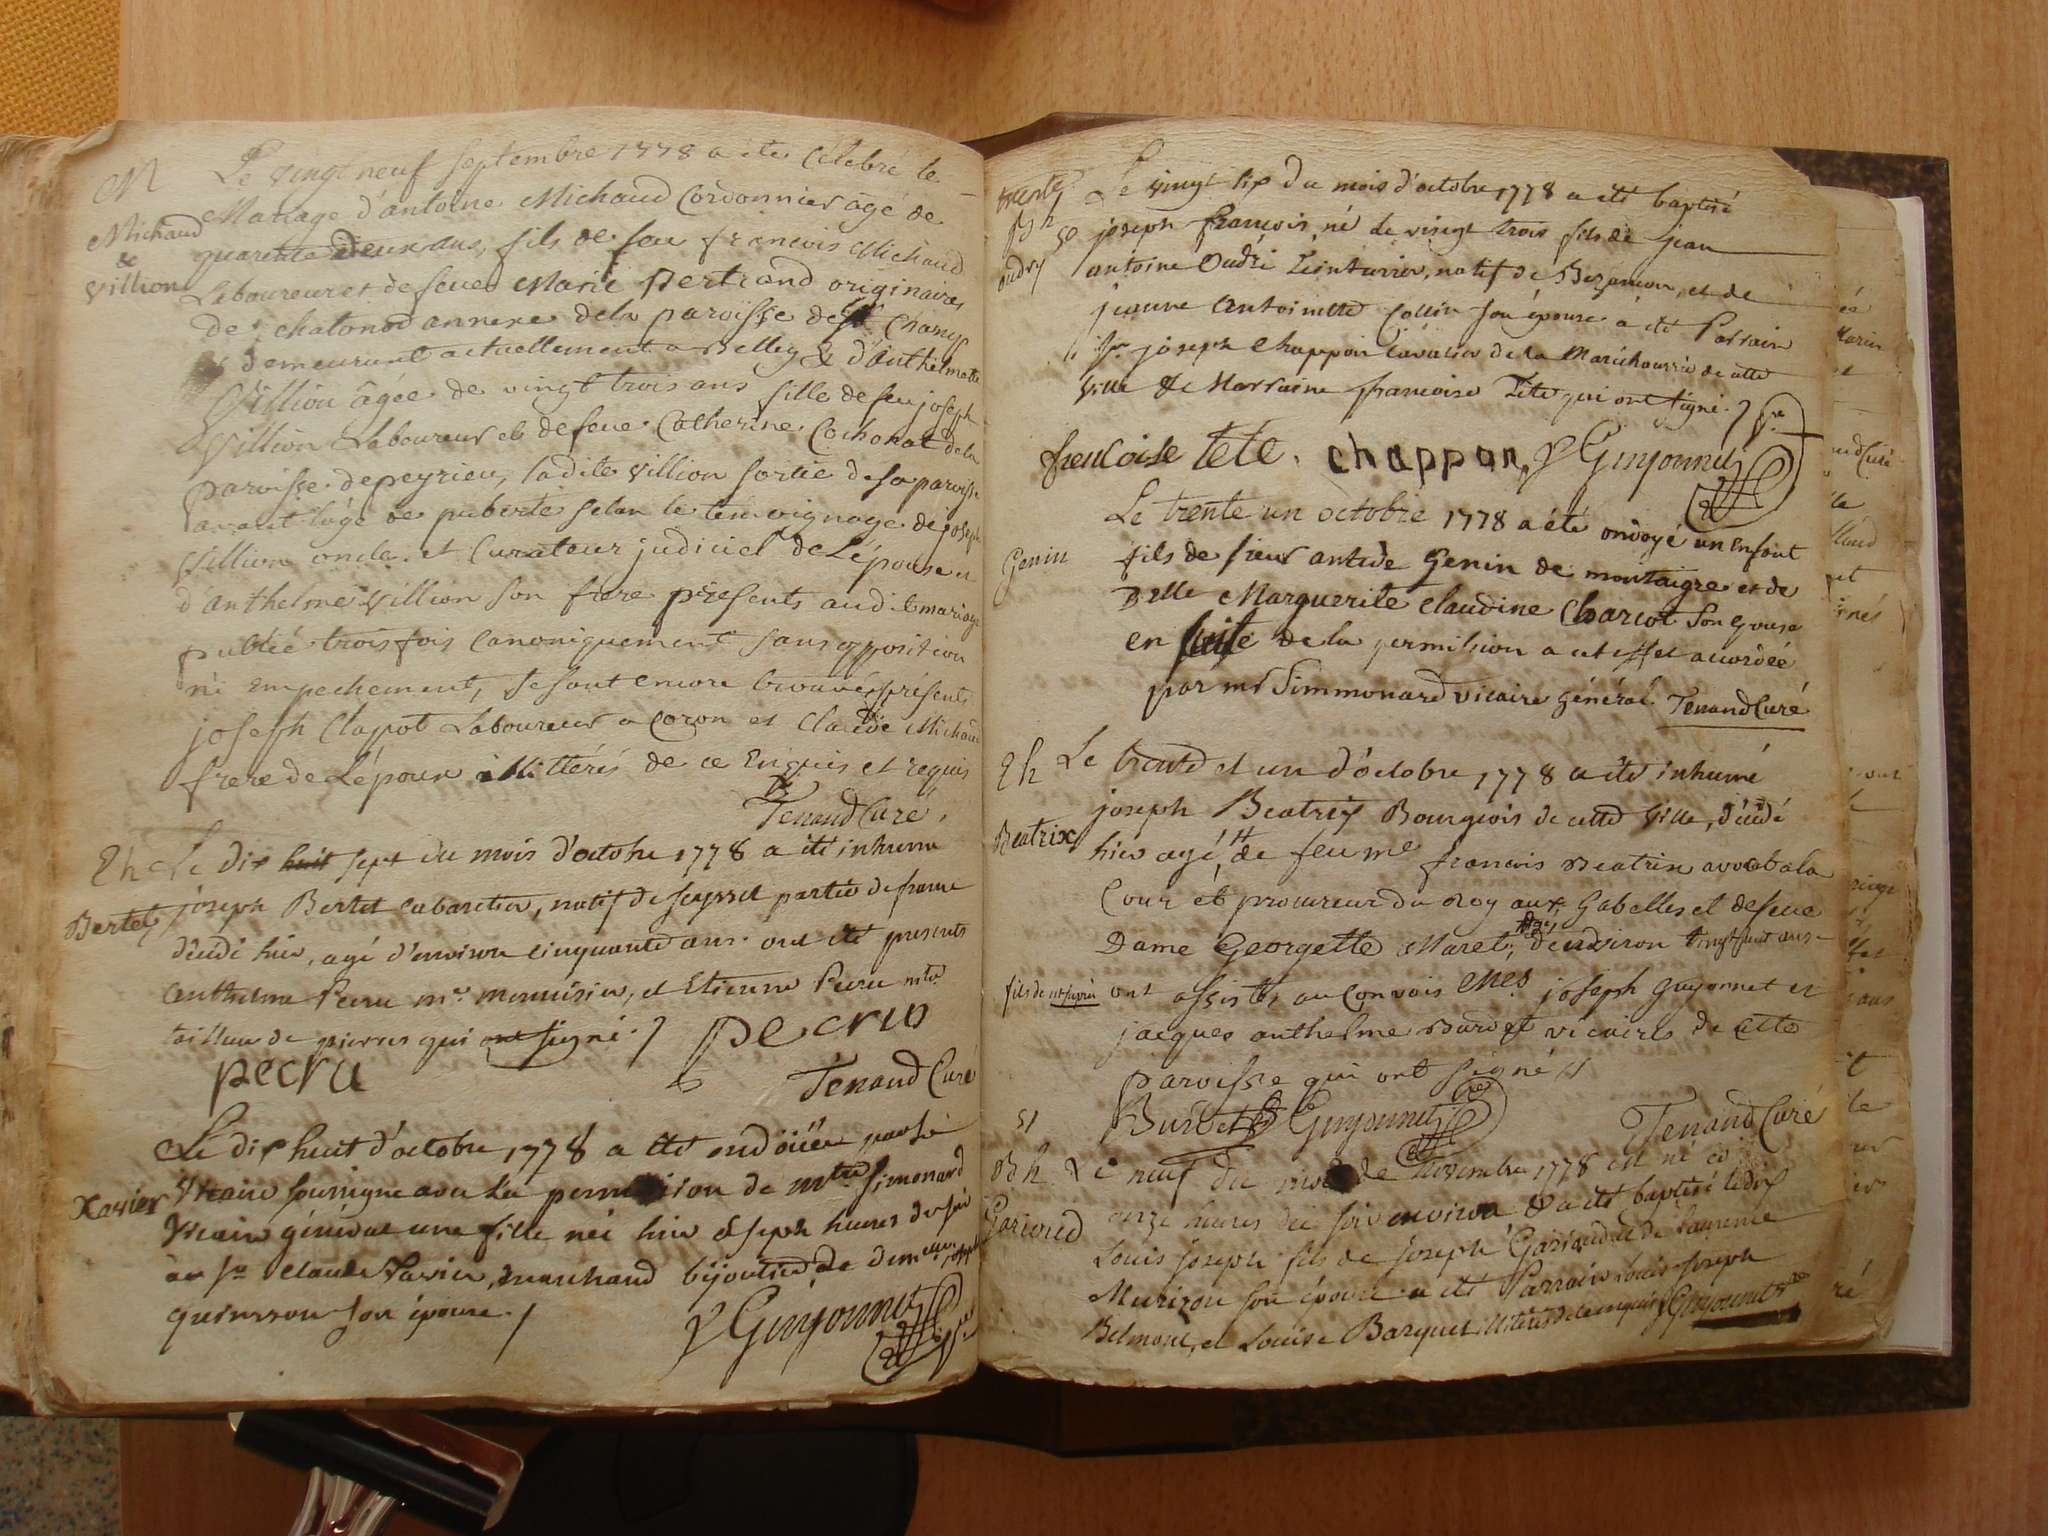 M
Michaud
&
Villion
Le vingt neuf septembre 1778 a été célébré le
Mariage d'antoine Michaud Cordonnier agé de
quarente deux ans, fils de feu francois Michaud
Laboureur et de feue Marie Bertrand originaires
de chatonod annexe de la paroisse de Champ
demeurant actuellement a Belley & d'Anthelmette
Villion agée de vingt trois ans fille de feu joseph
Villion Laboureur et de feue Catherine Cochonat de la
paroisse de peyrieu, ladite Villion sortie de sa paroisse
avant l'agé de puberté selon le temoignage de joseph
Villion oncle et Curateur judiciel de L'épouse et
d'anthelme Villion son frere présents audit mariage
publié trois fois canoniquement sans opposition
ni empechement, se sont encore trouvés présents
joseph Clapot Laboureur a Coron et Claude Michaud
frere de L'époux illittérés de ce Enquis et requis
Tenand Curé
Bertet
Le dix huit sept du mois d'octobre 1778 a été inhumé
joseph Bertet cabaretier, natif de seyssel partie de france
décédé hier, agé d'environ cinquante ans. ont été presents
anthelme Pecru me menuisier, et Etienne Pecru me
tailleur de pierres qui ont signé./ pecru
pecru
Tenand Curé
Xavier
Le dix huit d'octobre 1778 a été ondoiiée par le
Vicaire soussigné avec la permission de mtre Simonard
Vicaire général une fille née hier a sept heures du soir
au sr Claude Xavier, marchand bijoutier, de demelle
quinsson son épouse./
Guyonnet
50
oudry
Le vingt six du mois d'octobre 1778 a été baptisé
joseph francois né le vingt trois fils de jean
antoine Oudri Teinturier, natif de Bezancon, et de
jeanne Antoinette Collin son épouse. a été Parrain
sr joseph Chappon Cavalier de la Maréchaussée de cette
ville & Marraine francoise Tete qui ont signé./
francoise tete. chappon, Guyonnet
Genin
Le trente un octobre 1778 a été ondoyé un Enfant
fils de sieur antide Genin de montaigre et de
Delle Marguerite Claudine Charcot son Epouse
en suite de la permission a cet effet accordée
par mr Simmonard vicaire général. Tenand Curé
Beatrix
Le trente et un d'octobre 1778 a été inhumé
joseph Beatrix Bourgeois de cette ville, décédé
hier agé, de feu me francois Beatrix avocat a la
Cour et procureur du Roy aux Gabelles et de feue
Dame Georgette Maret, agé d'environ vingt huit ans
fils de
ont assistés au Convois Mes joseph guyonnet et
jacques anthelme Burdet vicaires de cette
paroisse qui ont signé
Burdet Guyonnet Tenand Curé
51
Gariond
Le neuf du mois de Novembre 1778 est né a
onze heures du soir environ & a été baptisé le dix
Louis joseph fils de joseph Gariond et de Laurence
Murizon son épouse a été Parrain Louis joseph
Belmont, et Louise Barquet illiterés de ce enquis Guyonnet